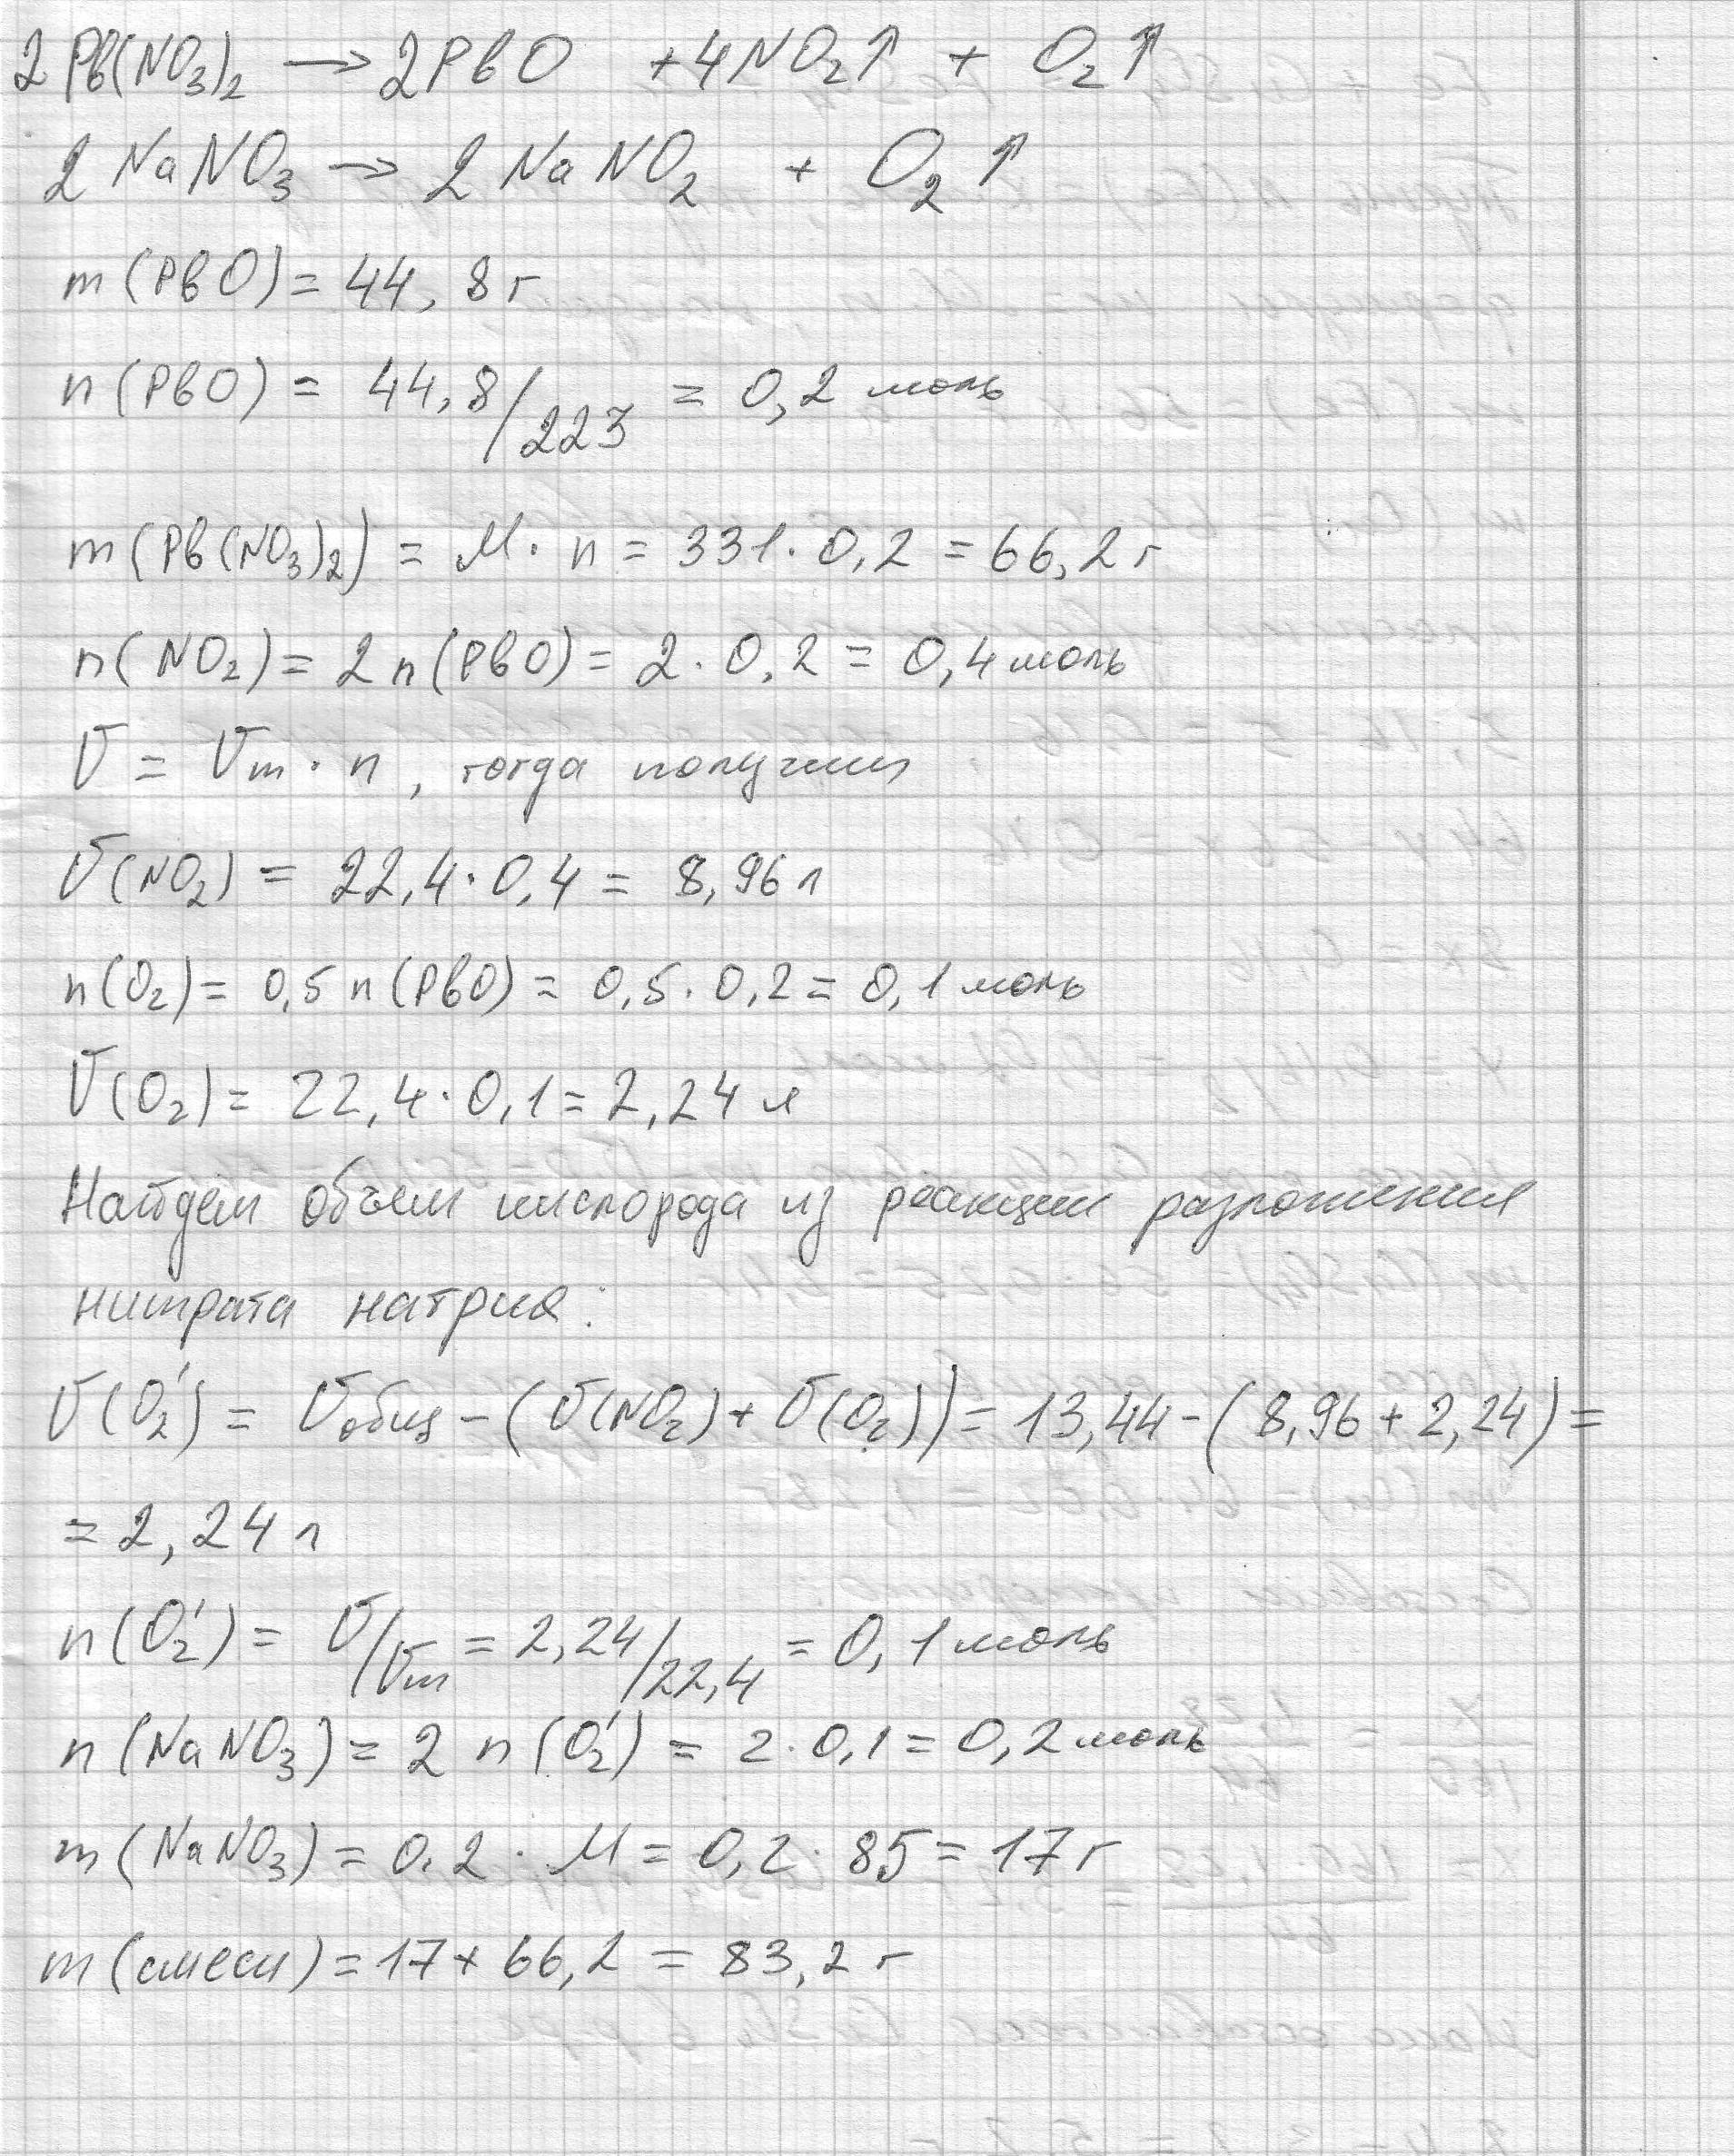 2Pb(NO₃)₂ → 2PbO + 4NO₂↑ + O₂↑
2NaNO₃ → 2NaNO₂ + O₂↑
m(PbO) = 44,8 г
n(PbO) = 44,8/223 = 0,2 моль
m(Pb(NO₃)₂) = M · n = 331 · 0,2 = 66,2 г
n(NO₂) = 2n(PbO) = 2 · 0,2 = 0,4 моль
V = Vm · n, тогда получим
V(NO₂) = 22,4 · 0,4 = 8,96 л
n(O₂) = 0,5n(PbO) = 0,5 · 0,2 = 0,1 моль
V(O₂) = 22,4 · 0,1 = 2,24 л
Найдем объем кислорода из реакции разложения
нитрата натрия:
V(O₂') = Vобщ − (V(NO₂) + V(O₂)) = 13,44 − (8,96 + 2,24) =
= 2,24 л
n(O₂') = V/Vm = 2,24/22,4 = 0,1 моль
n(NaNO₃) = 2n(O₂') = 2 · 0,1 = 0,2 моль
m(NaNO₃) = 0,2 · M = 0,2 · 85 = 17 г
m(смеси) = 17 + 66,2 = 83,2 г